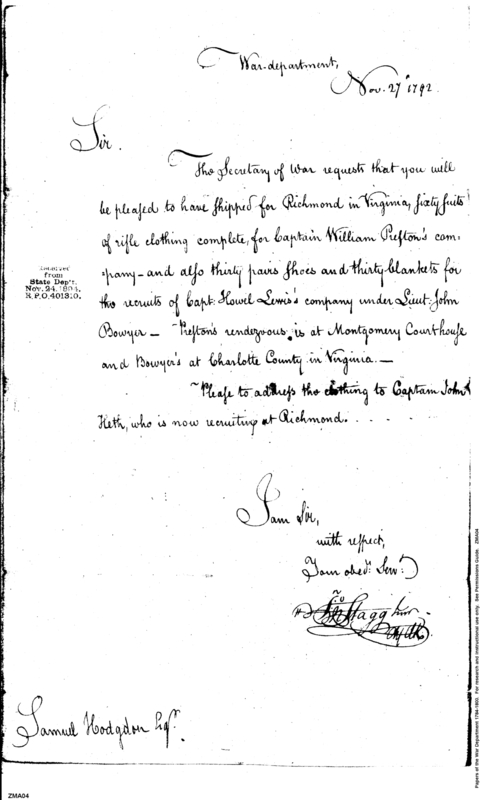 War-department,
Nov. 27th 1792.
Sir.
The Secretary of War requests that you will
be pleased to have shipped for Richmond in Virginia, sixty suits
of rifle clothing complete, for Captain William Preston's com-
-pany - and also thirty pairs Shoes and thirty blankets for
the recruits of Capt. Howel Lewis's company under Lieut. John
Bowyer — Preston's rendezvous is at Montgomery Courthouse
and Bowyer's at Charlotte County in Virginia. —
Please to address the clothing to Captain John
Heth, who is now recruiting at Richmond. . . . .
Received
from
State Dep't.
Nov. 24, 1894,
R.P.O. 401310.
I am Sir,
with respect,
Your obedt. Servt.
Jno Stagg Junr
Samuel Hodgdon Esqr.
ZMA04
Papers of the War Department 1784-1800. For research and instructional use only. See Permissions Guide. ZMA04